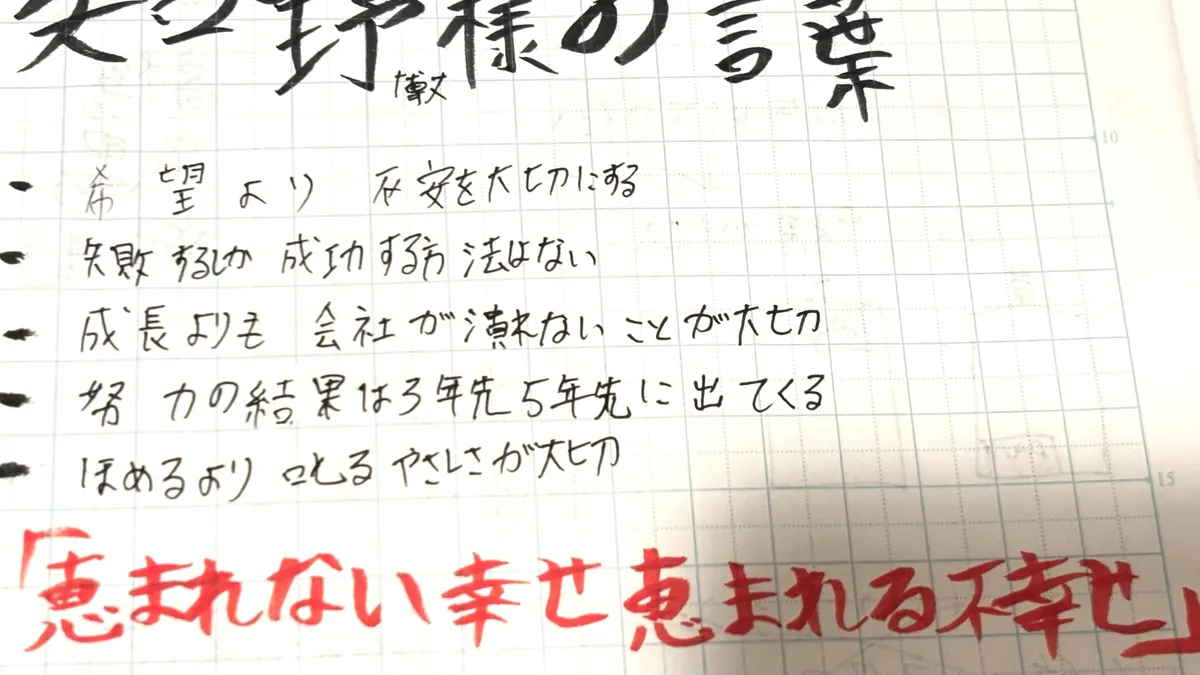 矢野様の言葉
博丈
希望より不安を大切にする
失敗するしか成功する方法はない
成長よりも会社が潰れないことが大切
努力の結果は3年先5年先に出てくる
ほめるより叱るやさしさが大切
「恵まれない幸せ恵まれる不幸せ」
10
15